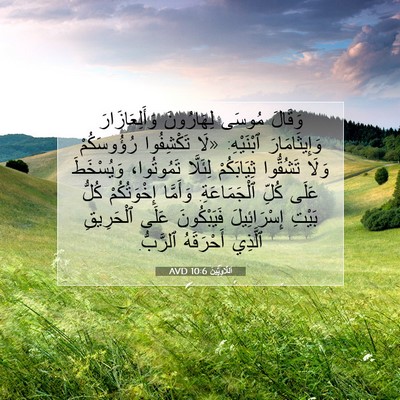 وَقَالَ مُوسَى لِهَارُونَ وَأَلِعَازَارَ
وَإِيثَامَارَ ٱبْنَيْهِ: «لَا تَكْشِفُوا رُؤُوسَكُمْ
وَلَا تَشُقُّوا ثِيَابَكُمْ لِئَلَّا تَمُوتُوا، وَيُسْخَطَ
عَلَى كُلِّ ٱلْجَمَاعَةِ. وَأَمَّا إِخْوَتُكُمْ كُلُّ
بَيْتِ إِسْرَائِيلَ فَيَبْكُونَ عَلَى ٱلْحَرِيقِ
ٱلَّذِي أَحْرَقَهُ ٱلرَّبُّ.
اَللَّاوِيِّينَ 10:6 AVD